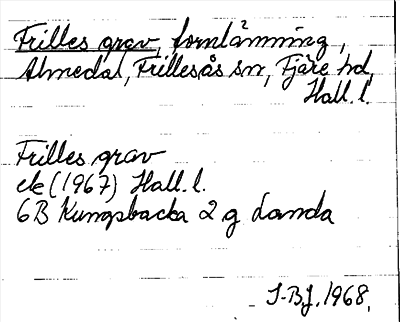 Frilles grav, fornlämning,
Almedal, Frillesås sn, Fjäre hd,
Hall. l.
Frilles grav
ek (1967) Hall. l.
6B Kungsbacka 2 g Landa
S-BJ. 1968.